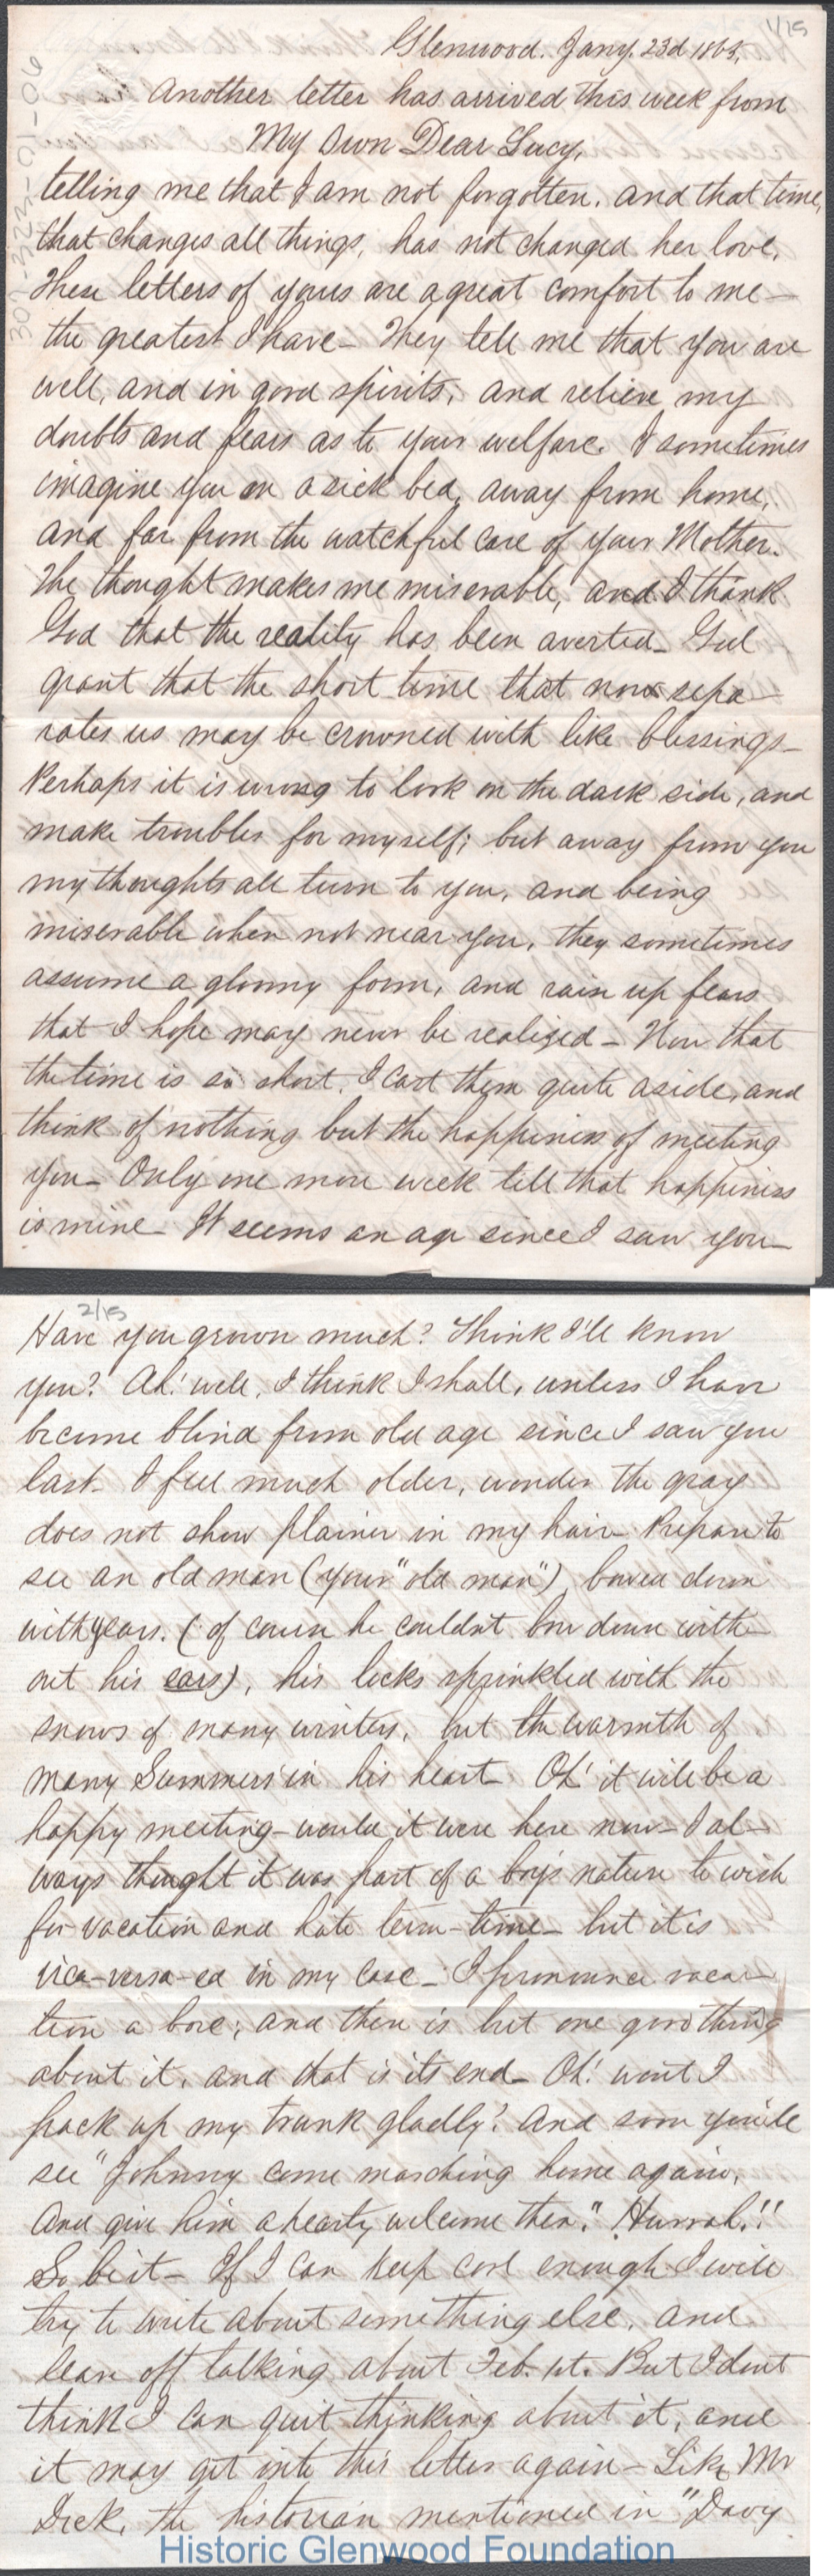 1/15
Glenwood. Jany. 23d 1865.
Another letter has arrived this week from
My Own Dear Lucy,
telling me that I am not forgotten. and that time,
that changes all things, has not changed her love.
These letters of yours are a great comfort to me—
the greatest I have— They tell me that you are
well, and in good spirits, and relieve my
doubts and fears as to your welfare. I sometimes
imagine you on a sick bed, away from home,
and far from the watchful care of your Mother.
The thought makes me miserable, and I thank
God that the reality has been averted— God
grant that the short time that now sepa-
rates us may be crowned with like blessings—
Perhaps it is wrong to look on the dark side, and
make troubles for myself; but away from you
my thoughts all turn to you, and being
miserable when not near you, they sometimes
assume a gloomy form, and rain up fears
that I hope may never be realized— Now that
the time is so short, I cast them quite aside, and
think of nothing but the happiness of meeting
you— Only one more week till that happiness
is mine— It seems an age since I saw you—
2/15
Have you grown much? Think I'll know
you? Ah! well, I think I shall, unless I have
become blind from old age since I saw you
last— I feel much older, wonder the gray
does not show plainer in my hair— Prepare to
see an old man (your "old man") bowed down
with years. (of course he couldn't bow down with-
out his ears), his locks sprinkled with the
snows of many winters, but the warmth of
many Summers in his heart— Oh! it will be a
happy meeting—would it were here now— I al-
ways thought it was part of a boy's nature to wish
for vacation and hate term-time— but it is
vica-versa-ed in my case— I pronounce vaca-
tion a bore; and there is but one good thing
about it, and that is its end— Oh! wont I
pack up my trunk gladly! And soon you'll
see "Johnny come marching home again,
And give him a hearty welcome then." Hurrah!!
So be it— If I can keep cool enough I will
try to write about something else, and
leave off talking about Feb. 1st. But I dont
think I can quit thinking about it, and
it may get into this letter again— Like Mr
Dick, the historian mentioned in "Davy
Historic Glenwood Foundation